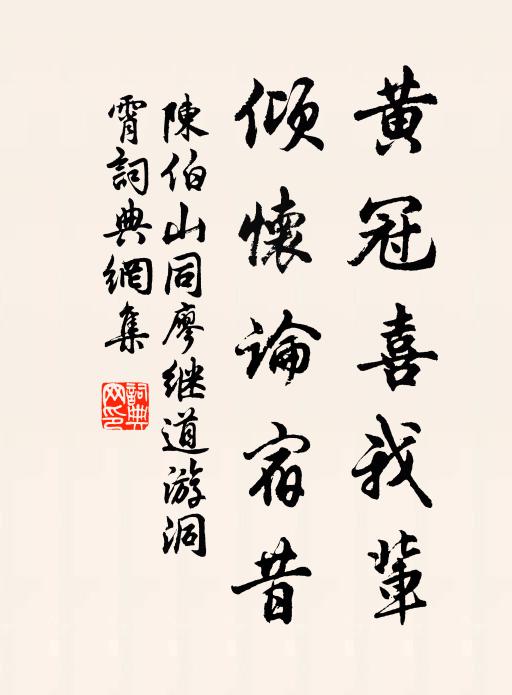 黄冠喜我輩
傾懷論宿昔
陳伯山同廖继道游洞
霄詞典網集
詞典网印